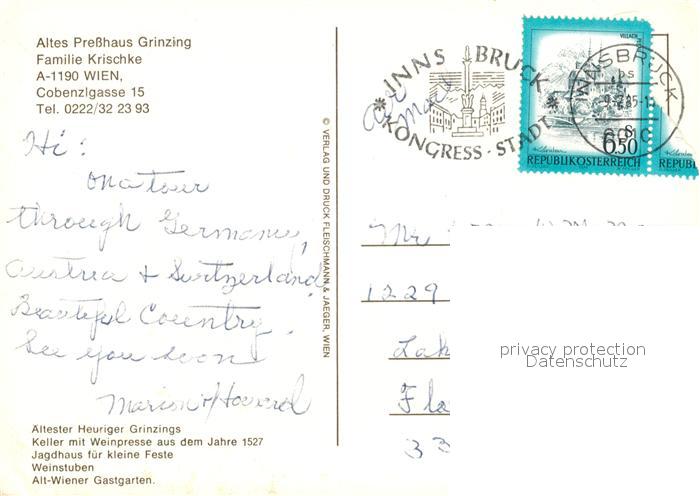 Altes Preßhaus Grinzing
Familie Krischke
A-1190 WIEN,
Cobenzlgasse 15
Tel. 0222/32 23 93
Hi!
On a tour
through Germany,
Austria & Switzerland
Beautiful Country.
See you soon
Marion & Howard
Ältester Heuriger Grinzings
Keller mit Weinpresse aus dem Jahre 1527
Jagdhaus für kleine Feste
Weinstuben
Alt-Wiener Gastgarten.
© VERLAG UND DRUCK FLEISCHMANN & JAEGER, WIEN
INNSBRUCK
KONGRESS-STADT
Air
Mail
VILLACH
INNSBRUCK
6.50
REPUBLIK ÖSTERREICH
REPU
Mr
1229
Lak
Fla
33
privacy protection
Datenschutz